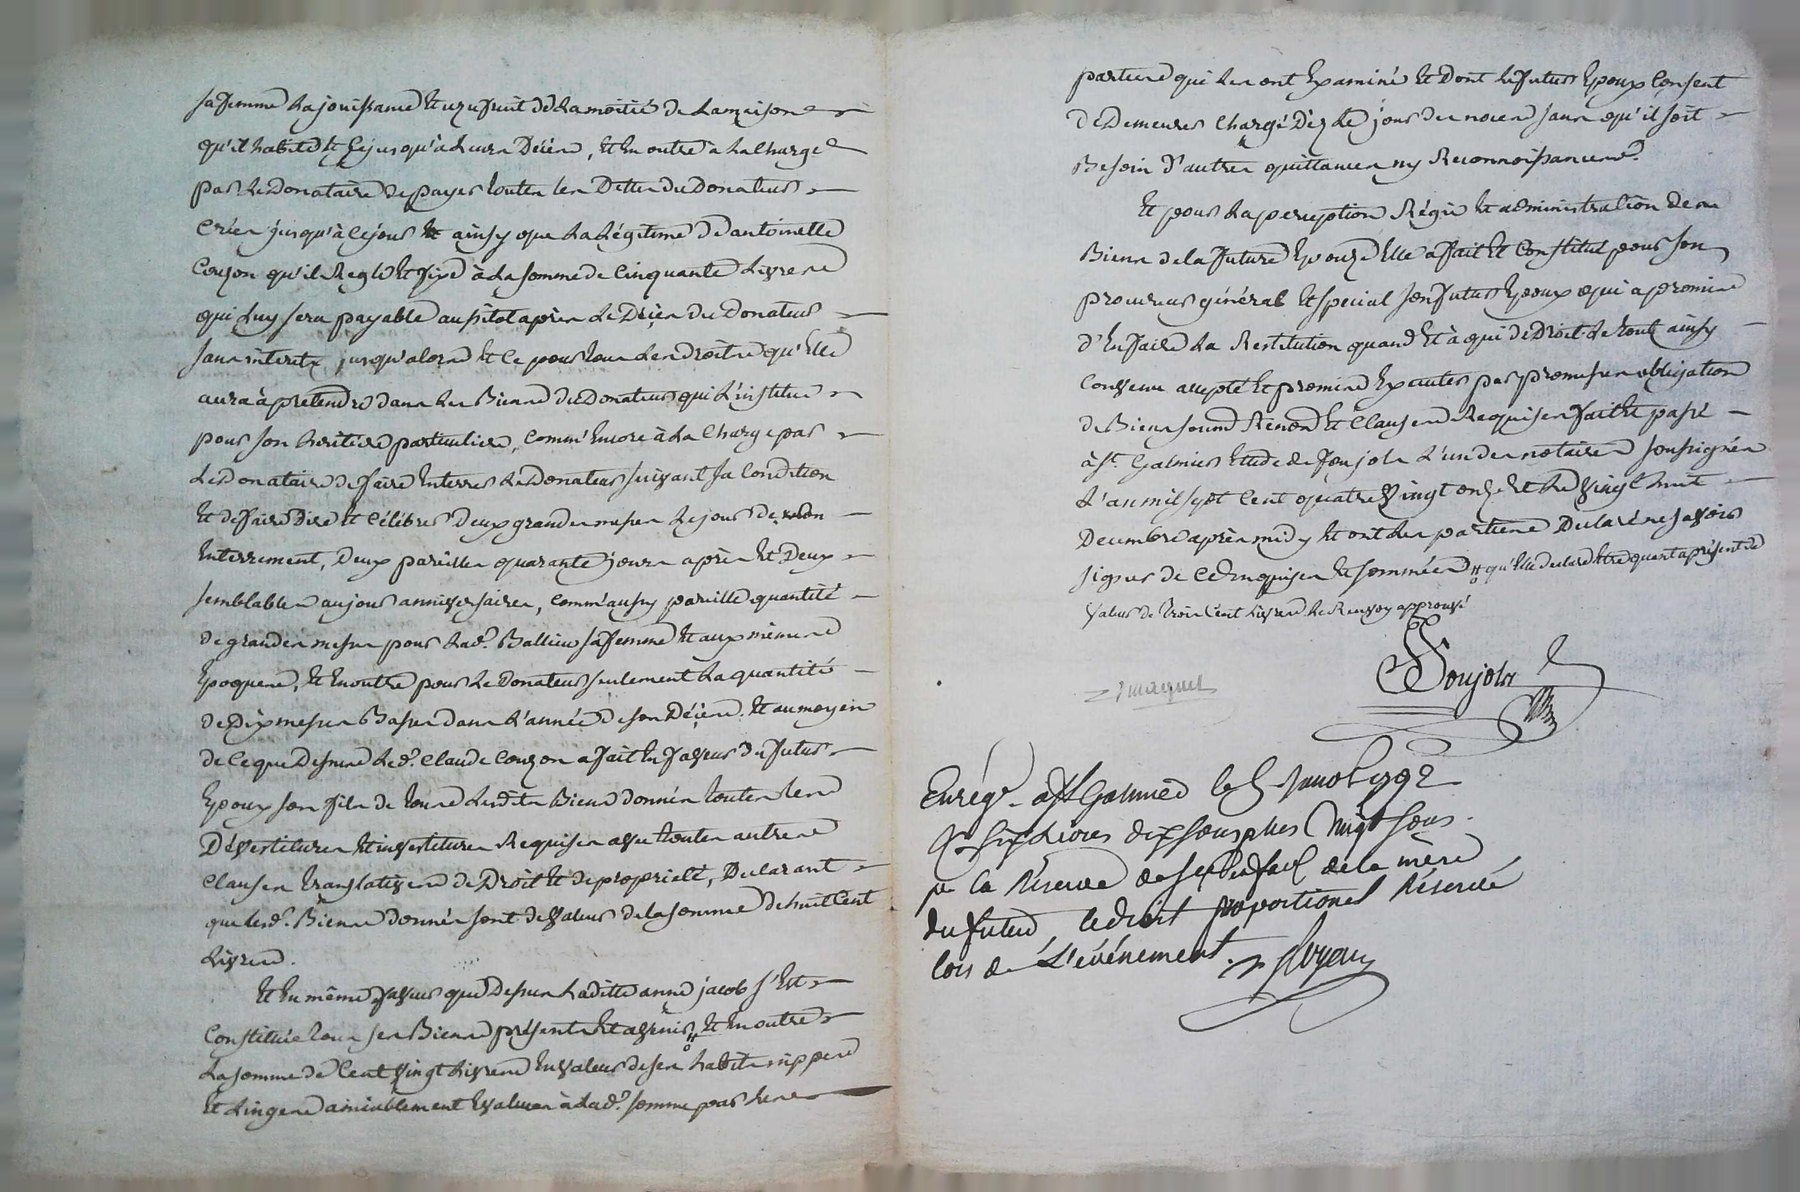 sa femme la jouissance et uzufruit de la moitié de la maison
qu'il habite et ce jusqu'à leurs Décès, et en outre à la charge
par le Donataire de payer toutes les Dettes du Donateur
créées jusqu'à ce jour et ainsy que la Légitime d'antoinette
Couzon qu'il Regle et fixe à la somme de Cinquante Livres
qui luy sera payable aussitot après le Décès du Donateur
sans interets jusqu'alors et ce pour tous les droits qu'elle
aura à pretendre dans les Biens du Donateur qui l'institue
pour son heritiere particuliere, comm' encore à la charge par
le Donataire de faire Enterrer le Donateur suivant sa Condition
et de faire Dire et Célébrer Deux grandes messes le jour de son
Enterrement, Deux pareilles quarante jours après et Deux
semblables au jour anniversaire, comm' aussy pareille quantité
de grandes messes pour lad.e Ballieu sa femme et aux mêmes
Epoques, et en outre pour le Donateur seulement la quantité
de Dix messes Basses dans l'année de son Décès. Et au moyen
de ce que Dessus led. Claude Couzon a fait En faveur du futur
Epoux son fils de tous lesdits Biens donnés toutes les
Dévestitures et investitures Requises avec toutes autres
clauses translatives de Droit et de propriété, Declarant
que lesd. Biens donnés sont de valeur de la somme de huit Cent
Livres.
Et en même faveur que Dessus Laditte anne jacob s'Est
Constituée tous ses Biens présents et avenir # et en outre
La somme de Cent vingt Livres En valeur de ses habits nippes
et Linges amiablement Evalués à lad.e somme par les
parties qui les ont Examiné et Dont le futur Epoux Consent
de Demeurer chargé Dèz le jour des noces sans qu'il soit
Besoin d'autres quittances ny Reconnoissances.
Et pour la perception Régie et administration des
Biens de la future Epouze Elle a fait et Constitué pour son
procureur général et special son futur Epoux qui a promis
d'En faire la Restitution quand et à qui de Droit. Le tout ainsy
Convenu accepté et promis Executer par promesses obligation
de Biens soumis Renon et Clauses Requises fait et passé
à St. Galmier Etude de Foujols l'un des notaires soussignés
L'an mil sept Cent quatre vingt onze et le vingt huit
Decembre après midy et ont les parties Declaré ne savoir
signer de ce Enquises et sommées # qu'elle declare être quant a présent de
valeur de trois Cent Livres le Renvoy approuvé
Foujols
Enrégé. a St Galmier le janvr 1792
Rç six Livres dix sous plus vingt sous
pr la Réserve de de la mère
du futur le droit proportionel Réservé
lors de L'événement.